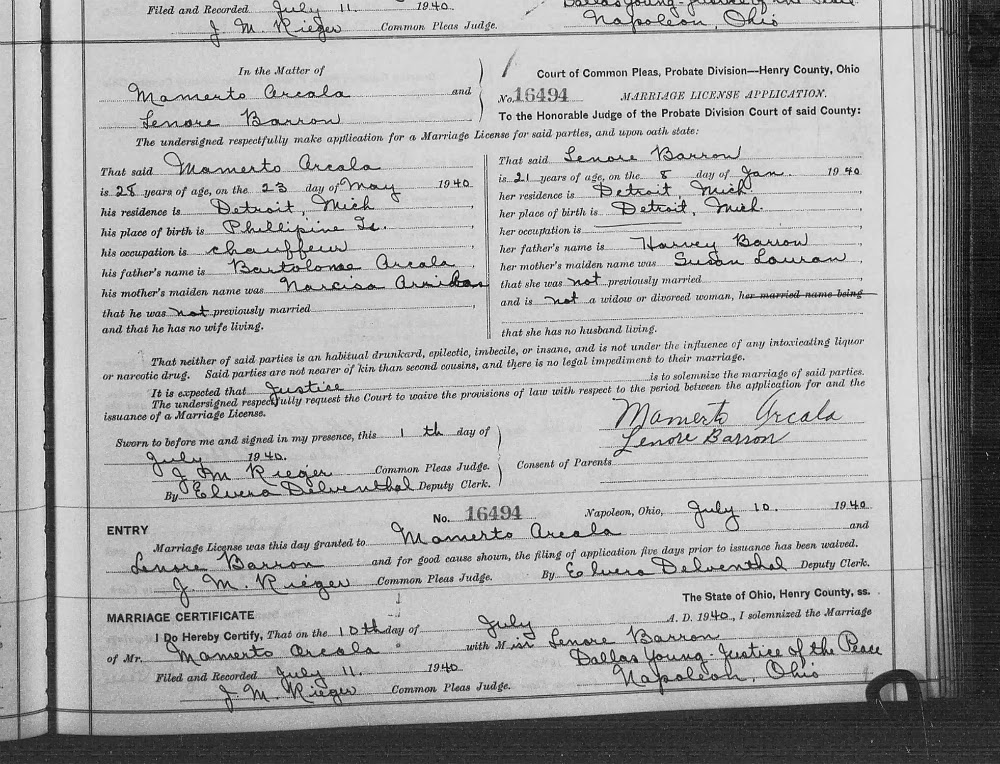 Filed and Recorded July 11. 1940. Dallas Young - Justice of the Peace
J. M. Rieger Common Pleas Judge. Napoleon, Ohio
In the Matter of
Mamerto Arcala and
Lenore Barron
Court of Common Pleas, Probate Division—Henry County, Ohio
No. 16494 MARRIAGE LICENSE APPLICATION.
To the Honorable Judge of the Probate Division Court of said County:
The undersigned respectfully make application for a Marriage License for said parties, and upon oath state:
That said Mamerto Arcala
is 28 years of age, on the 23 day of May 1940
his residence is Detroit, Mich
his place of birth is Phillipine Is.
his occupation is chauffeur
his father's name is Bartolome Arcala
his mother's maiden name was Narcisa
that he was not previously married
and that he has no wife living.
That said Lenore Barron
is 21 years of age, on the 8 day of Jan. 1940
her residence is Detroit, Mich.
her place of birth is Detroit, Mich.
her occupation is
her father's name is Harvey Barron
her mother's maiden name was Susan Lauran
that she was not previously married
and is not a widow or divorced woman, her married name being
that she has no husband living.
That neither of said parties is an habitual drunkard, epileptic, imbecile, or insane, and is not under the influence of any intoxicating liquor
or narcotic drug. Said parties are not nearer of kin than second cousins, and there is no legal impediment to their marriage.
It is expected that Justice is to solemnize the marriage of said parties.
The undersigned respectfully request the Court to waive the provisions of law with respect to the period between the application for and the
issuance of a Marriage License.
Mamerto Arcala
Lenore Barron
Sworn to before me and signed in my presence, this 1 th day of
July 1940.
J. M. Rieger Common Pleas Judge.
By Elvera Delventhal Deputy Clerk.
Consent of Parents
ENTRY No. 16494 Napoleon, Ohio, July 10. 1940
Marriage License was this day granted to Mamerto Arcala and
Lenore Barron and for good cause shown, the filing of application five days prior to issuance has been waived.
J. M. Rieger Common Pleas Judge. By Elvera Delventhal Deputy Clerk.
MARRIAGE CERTIFICATE The State of Ohio, Henry County, ss.
I Do Hereby Certify, That on the 10th day of July A. D. 1940, I solemnized the Marriage
of Mr. Mamerto Arcala with Miss Lenore Barron
Filed and Recorded July 11. 1940 Dallas Young - Justice of the Peace
J. M. Rieger Common Pleas Judge. Napoleon, Ohio